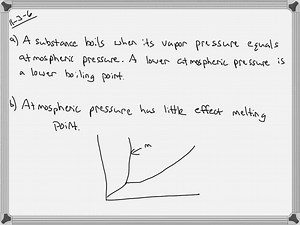 11-3-6
a) A substance boils when its vapor pressure equals
atmospheric pressure. A lower atmospheric pressure is
a lower boiling point.
b) Atmospheric pressure has little effect melting
point.
m